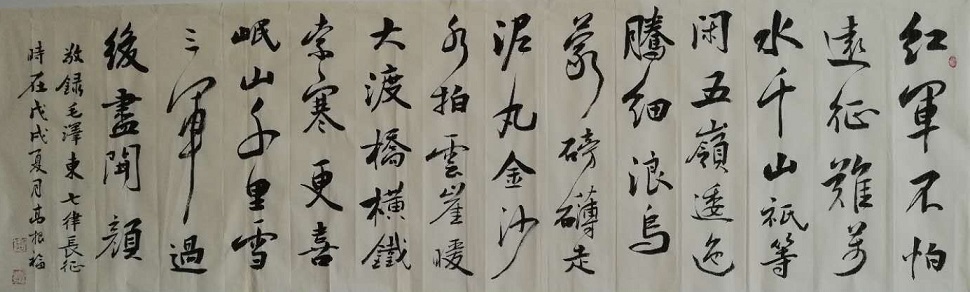 紅軍不怕
遠征難萬
水千山祇等
閑五嶺逶迤
騰細浪烏
蒙磅礴走
泥丸金沙
水拍雲崖暖
大渡橋橫鐵
索寒更喜
岷山千里雪
三軍過
後盡開顏
敬録毛澤東七律長征
時在戊戌夏月高根福